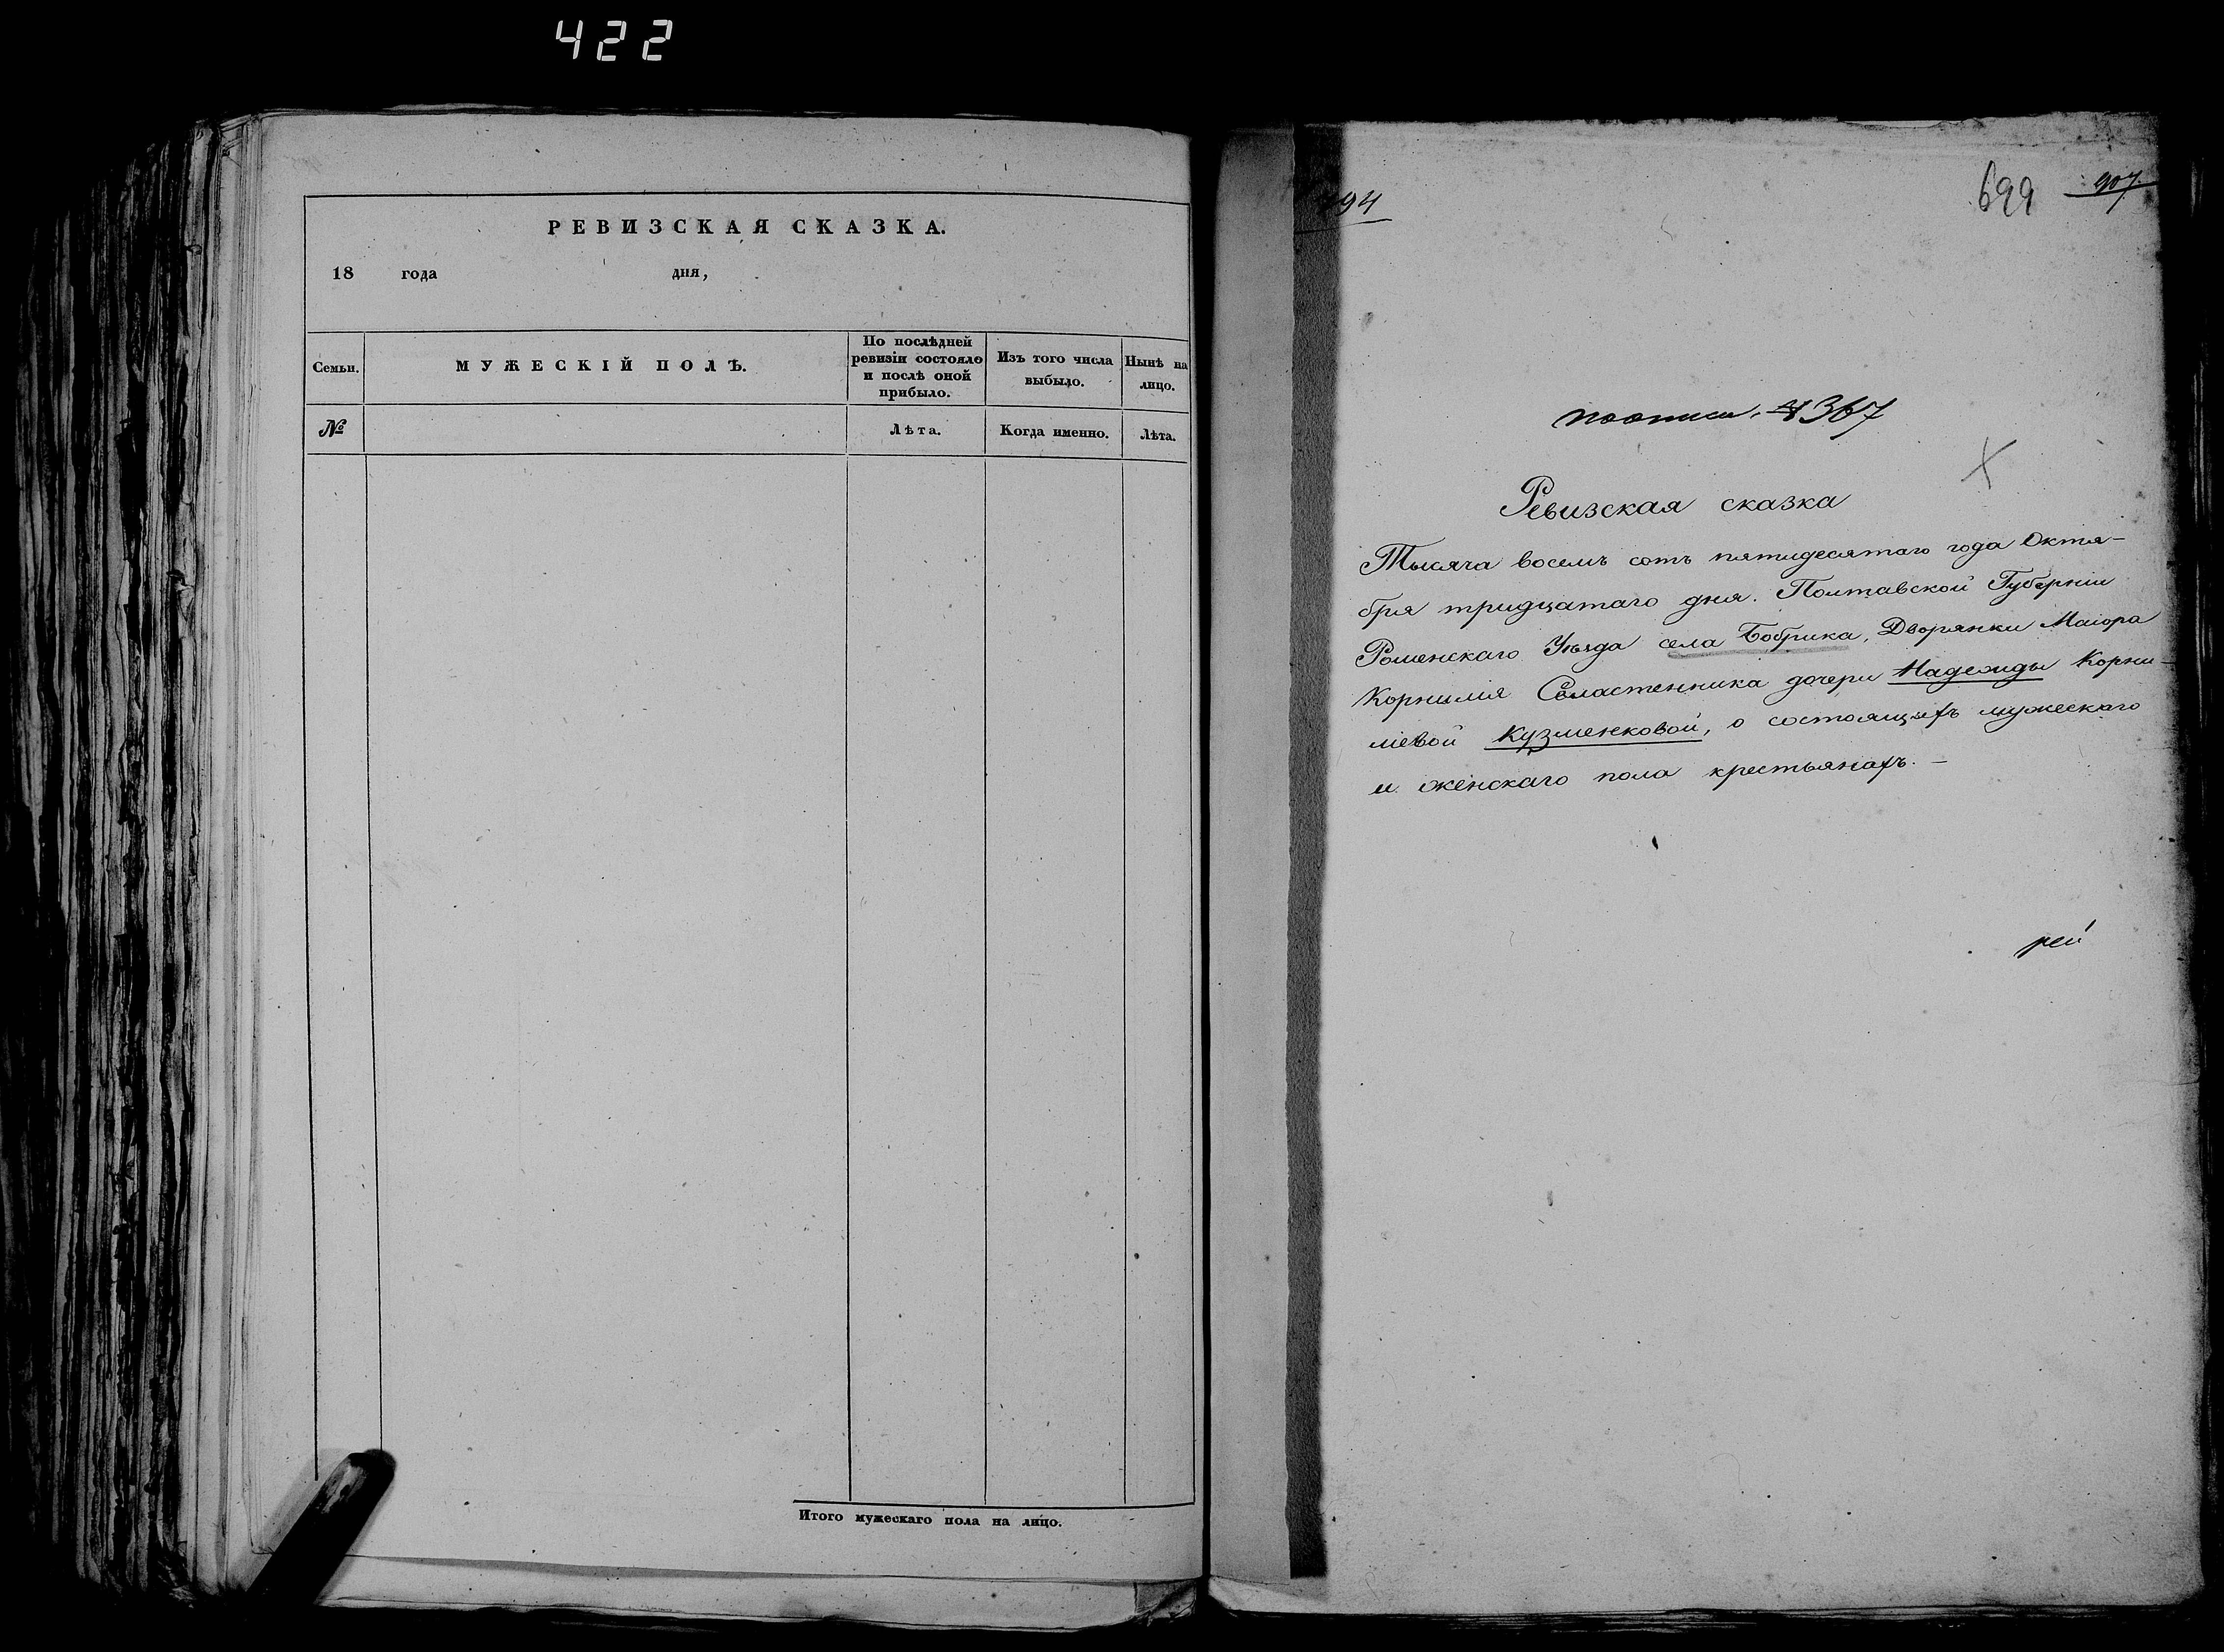 422
РЕВИЗСКАЯ СКАЗКА.
18 года дня,
Семьи.
МУЖЕСКІЙ ПОЛЪ.
По послѣдней
ревизіи состояло
и послѣ оной
прибыло.
Изъ того числа
выбыло.
Нынѣ на
лицо.
№
Лѣта.
Когда именно.
Лѣта.
Итого мужескаго пола на лицо.
94
699
907
по описи. 4367
Ревизская сказка
Тысяча восемъ сотъ пятидесятаго года Октя-
бря тридцатаго дня. Полтавской Губерніи
Роменскаго Уѣзда села Бобрика, Дворянки Маіора
Корнилія Сластенника дочери Надежды Корни-
ліевой Кузменковой, о состоящихъ мужескаго
и женскаго пола крестьянахъ. —
рей